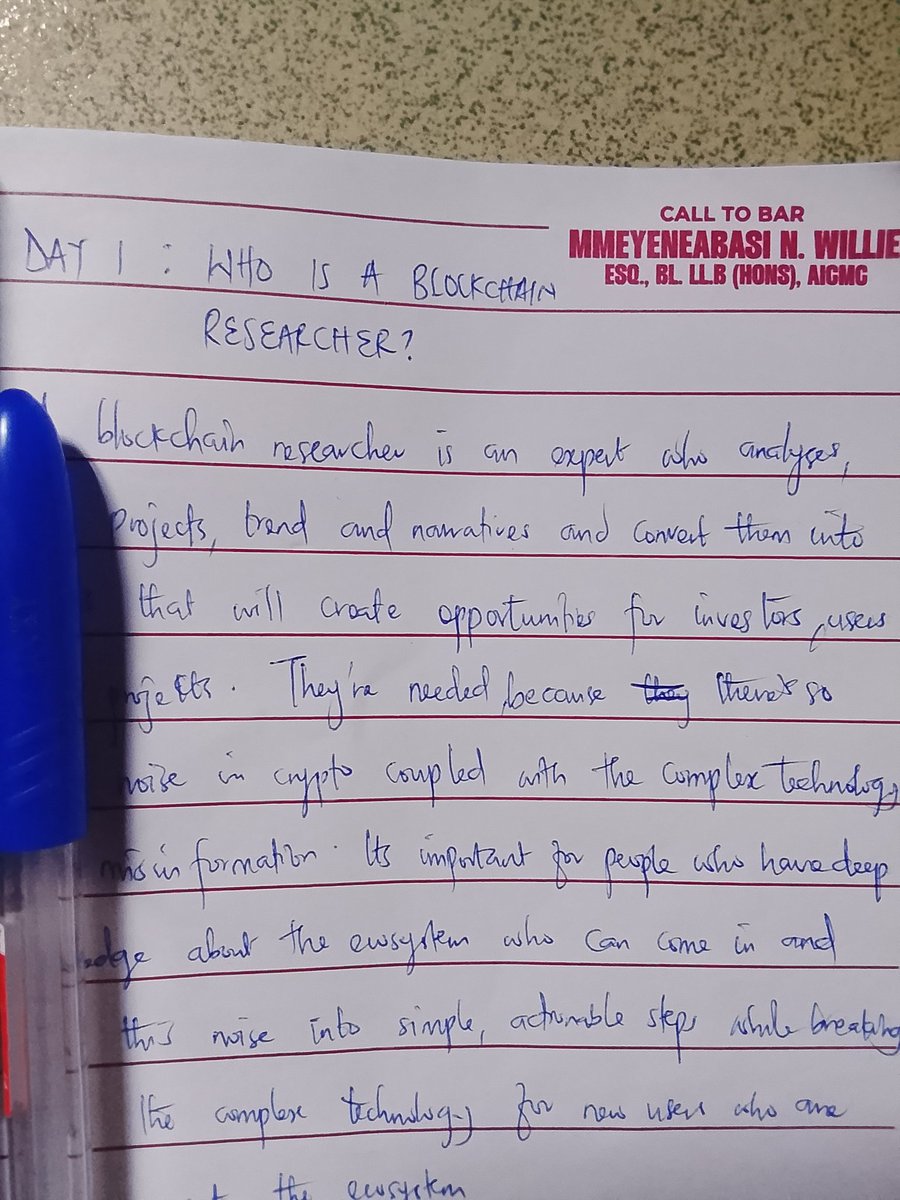 CALL TO BAR
MMEYENEABASI N. WILLIE
ESQ., BL. LL.B (HONS), AIGMC
DAY 1 : WHO IS A BLOCKCHAIN
RESEARCHER?
blockchain researcher is an expert who analyses,
projects, trend and narratives and convert them into
that will create opportunities for investors, users
projects. They're needed, because they there's so
noise in crypto coupled with the complex technology
misinformation. Its important for people who have deep
edge about the ecosystem who can come in and
this noise into simple, actionable steps while breaking
the complex technology for new users who are
the ecosystem